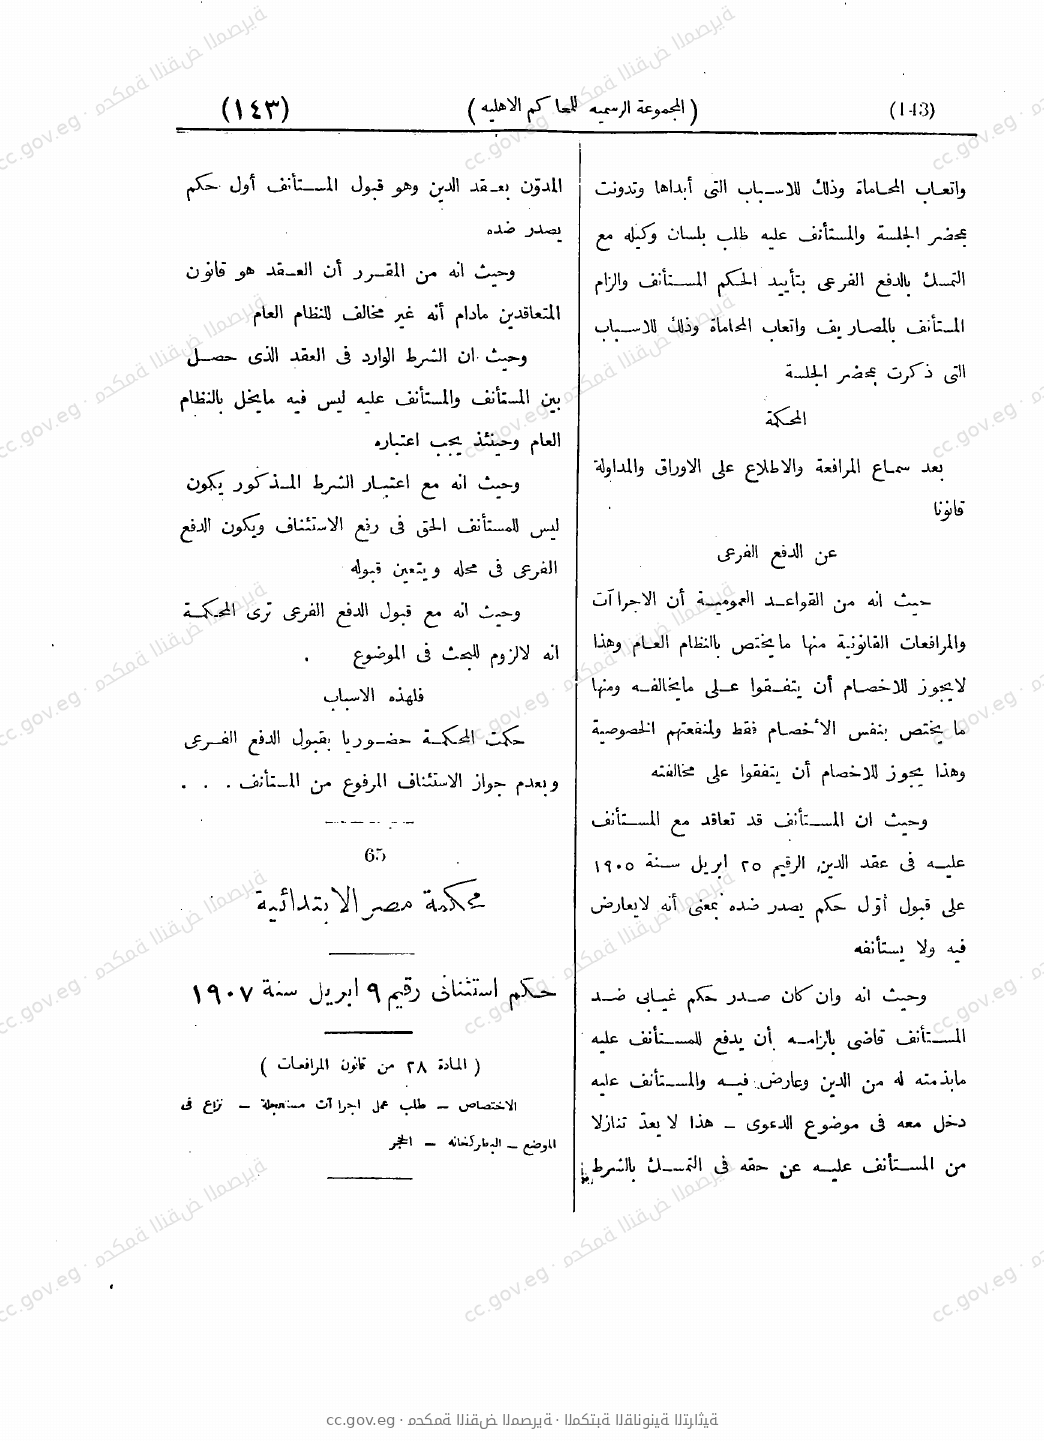 (143)
(المجموعة الرسميه للمحاكم الاهليه)
(١٤٣)
واتعاب المحاماة وذلك للاسباب التى أبداها وتدونت
بمحضر الجلسة والمستأنف عليه طلب بلسان وكيله مع
التمسك بالدفع الفرعى بتأييد الحكم المستأنف والزام
المستأنف بالمصاريف واتعاب المحاماة وذلك للاسباب
التى ذكرت بمحضر الجلسة
المحكمة
بعد سماع المرافعة والاطلاع على الاوراق والمداولة
قانونا
عن الدفع الفرعى
حيث انه من القواعد العمومية أن الاجراآت
والمرافعات القانونية منها ما يختص بالنظام العام وهذا
لايجوز للاخصام أن يتفقوا على مايخالفه ومنها
ما يختص بنفس الأخصام فقط ولمنفعتهم الخصوصية
وهذا يجوز للاخصام أن يتفقوا على مخالفته
وحيث ان المستأنف قد تعاقد مع المستأنف
عليه فى عقد الدين الرقيم ٢٥ ابريل سنة ١٩٠٥
على قبول أوّل حكم يصدر ضده بمعنى أنه لايعارض
فيه ولا يستأنفه
وحيث انه وان كان صدر حكم غيابى ضد
المستأنف قاضى بالزامه أن يدفع للمستأنف عليه
مابذمته له من الدين وعارض فيه والمستأنف عليه
دخل معه فى موضوع الدعوى – هذا لا يعدّ تنازلا
من المستأنف عليه عن حقه فى التمسك بالشرط
المدوّن بعقد الدين وهو قبول المستأنف أول حكم
يصدر ضده
وحيث انه من المقرر أن العقد هو قانون
المتعاقدين مادام أنه غير مخالف للنظام العام
وحيث ان الشرط الوارد فى العقد الذى حصل
بين المستأنف والمستأنف عليه ليس فيه مايخل بالنظام
العام وحينئذ يجب اعتباره
وحيث انه مع اعتبار الشرط المذكور يكون
ليس للمستأنف الحق فى رفع الاستئناف ويكون الدفع
الفرعى فى محله ويتعين قبوله
وحيث انه مع قبول الدفع الفرعى ترى المحكمة
انه لالزوم للبحث فى الموضوع .
فلهذه الاسباب
حكمت المحكمة حضوريا بقبول الدفع الفرعى
وبعدم جواز الاستئناف المرفوع من المستأنف . . .
65
محكمة مصر الابتدائية
حكم استئنافى رقيم ٩ ابريل سنة ١٩٠٧
(المادة ٢٨ من قانون المرافعات)
الاختصاص – طلب عمل اجراآت مستعجلة – نزاع فى
الموضع – البطركخانه – الحجر
cc.gov.eg · محكمة النقض المصرية · المكتبة القانونية التراثية